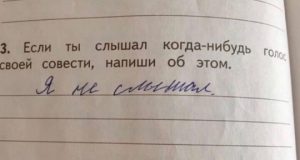 3. Если ты слышал когда-нибудь голос
своей совести, напиши об этом.
Я не слышал.